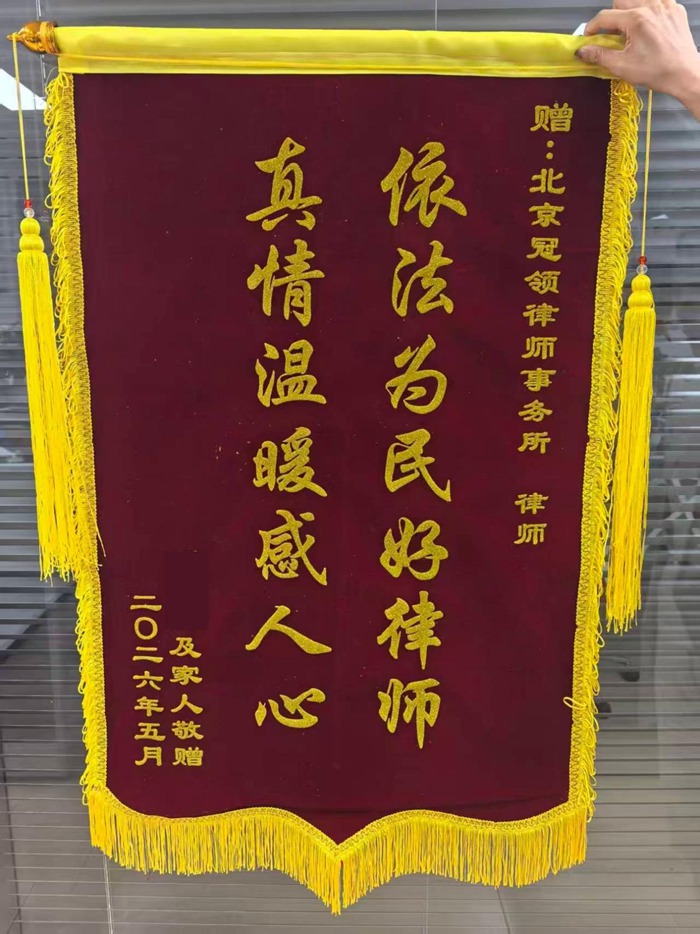 赠：北京冠领律师事务所 律师
依法为民好律师
真情温暖感人心
及家人敬赠
二〇二六年五月